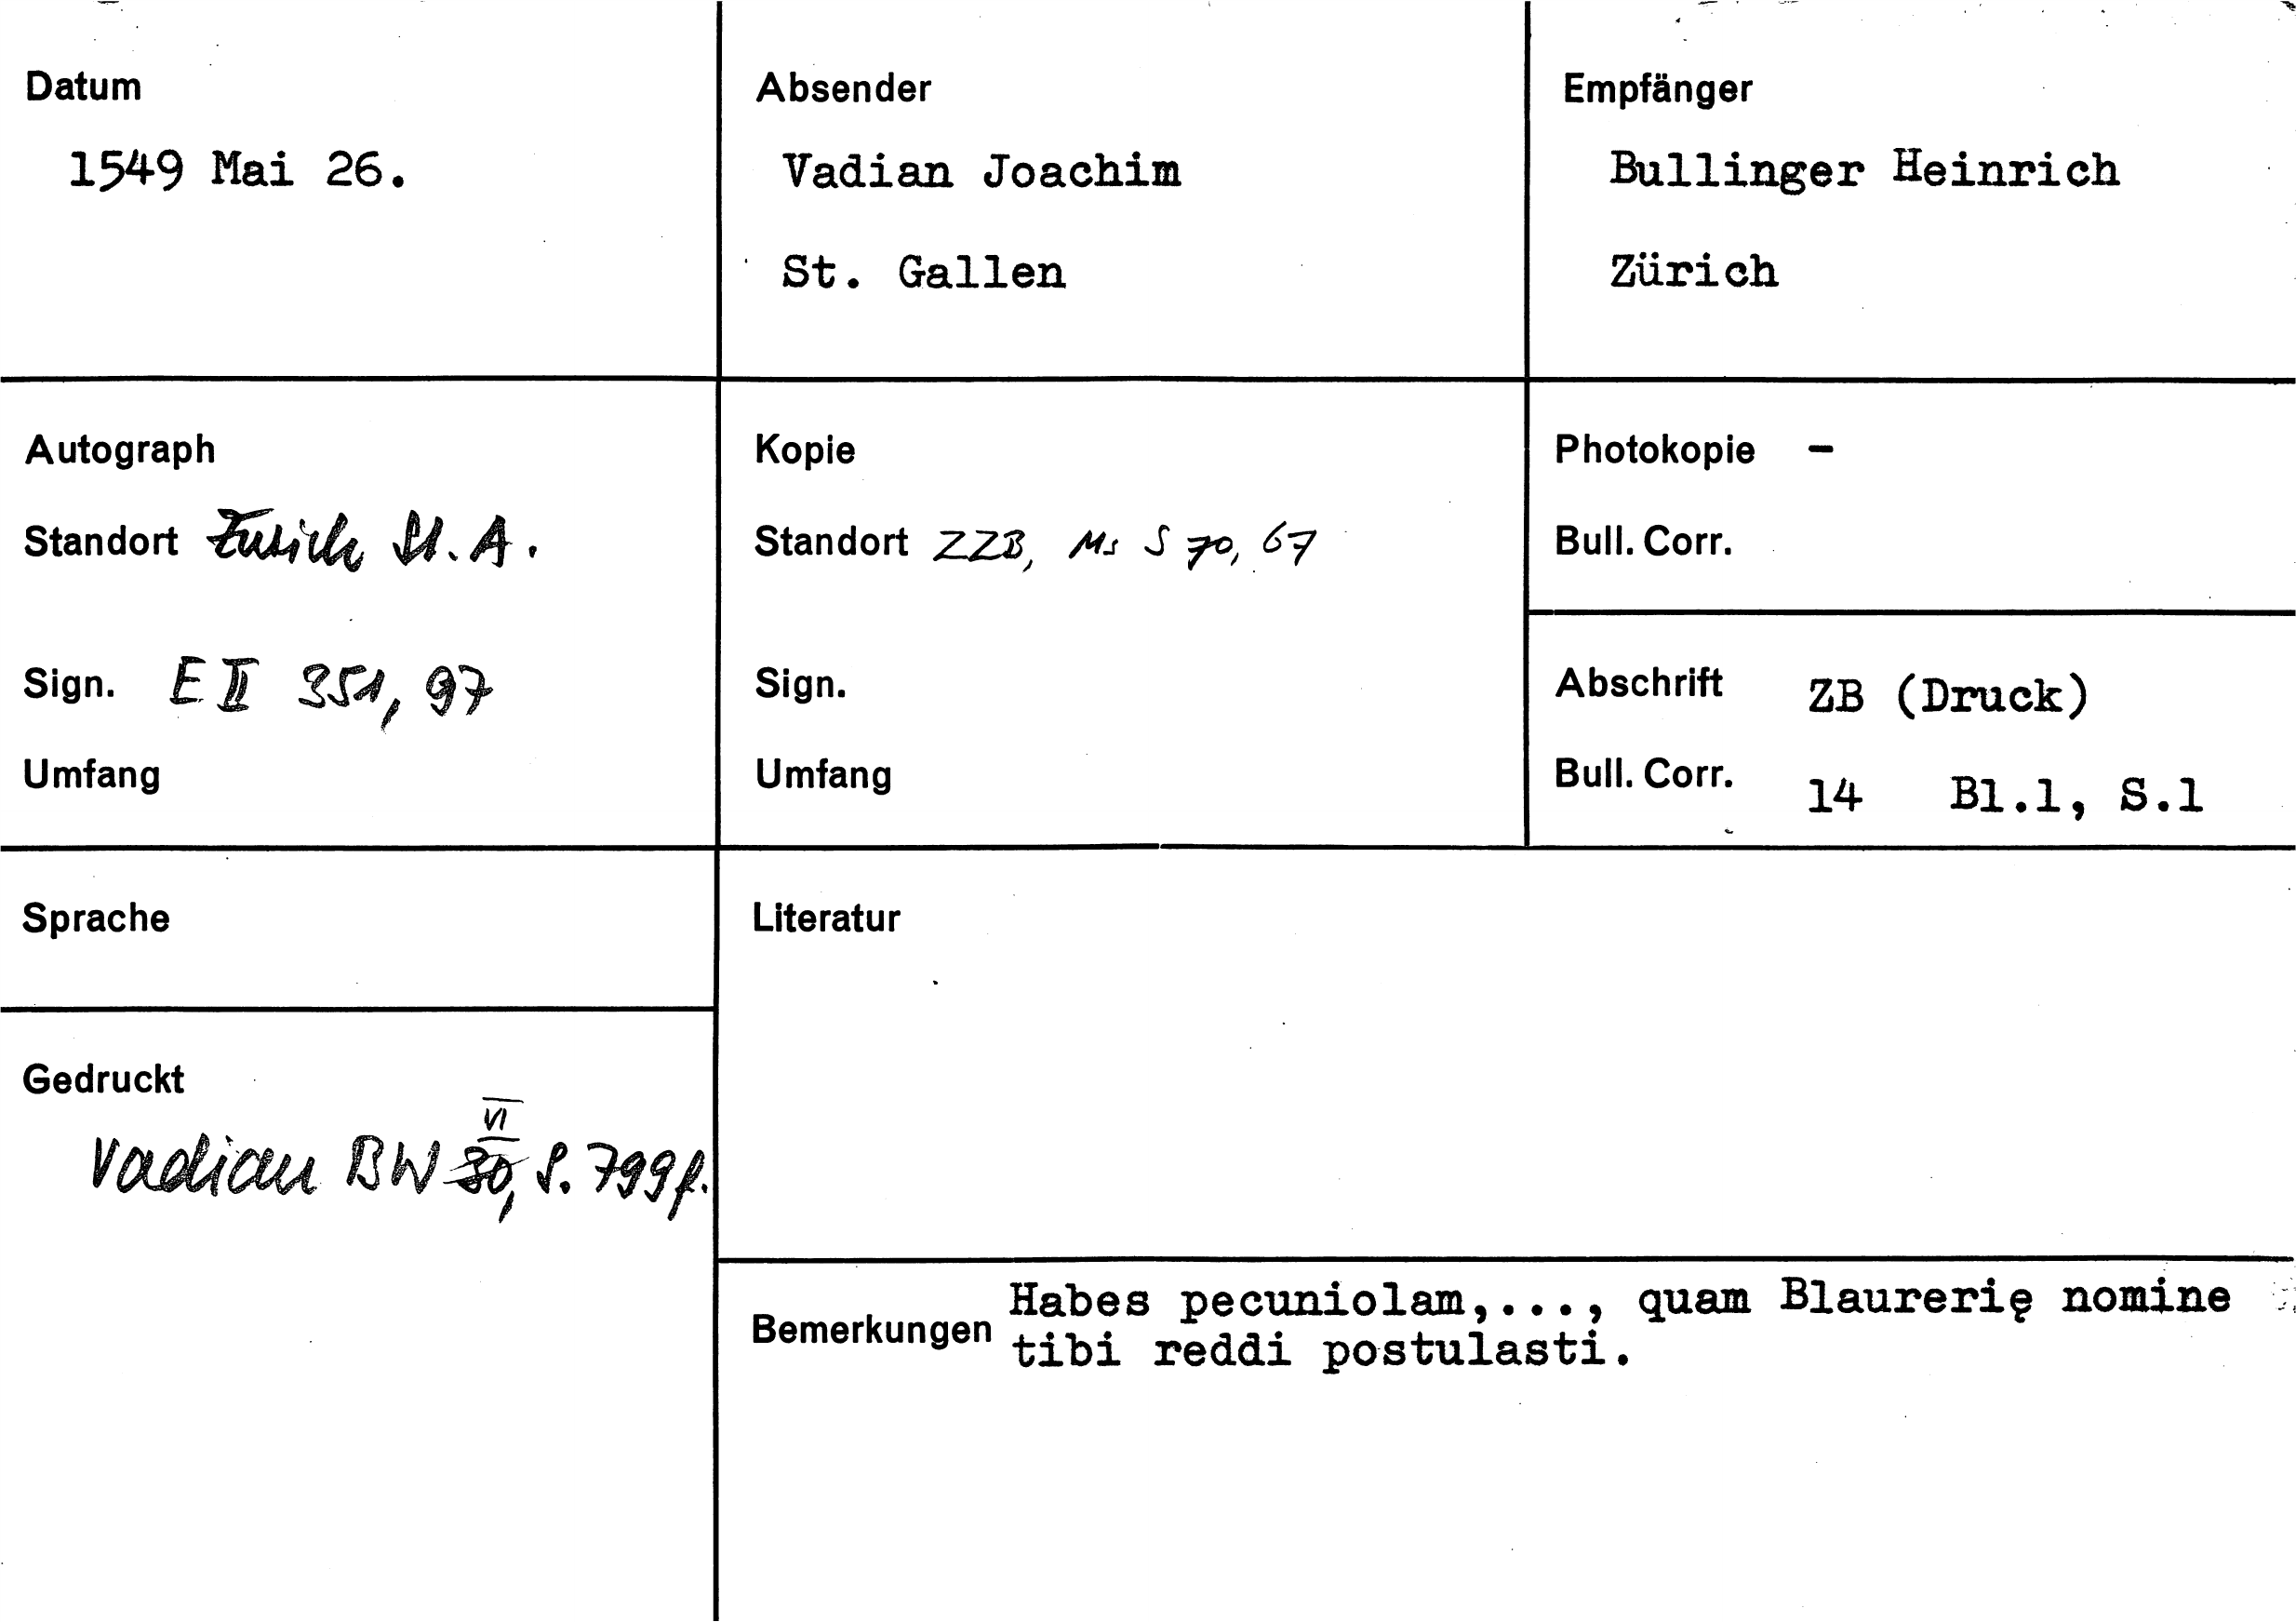 Datum
1549 Mai 26.
Absender
Vadian Joachim
St. Gallen
Empfänger
Bullinger Heinrich
Zürich
Autograph
Standort Zürich St. A.
Sign. E II 351, 97
Umfang
Kopie
Standort ZZB, Ms S 70, 67
Sign.
Umfang
Photokopie –
Bull. Corr.
Abschrift ZB (Druck)
Bull. Corr. 14 Bl.1, S.1
Sprache
Gedruckt
VI
Vadian BW 30, S. 799f.
Literatur
Bemerkungen Habes pecuniolam,..., quam Blaurerię nomine
tibi reddi postulasti.